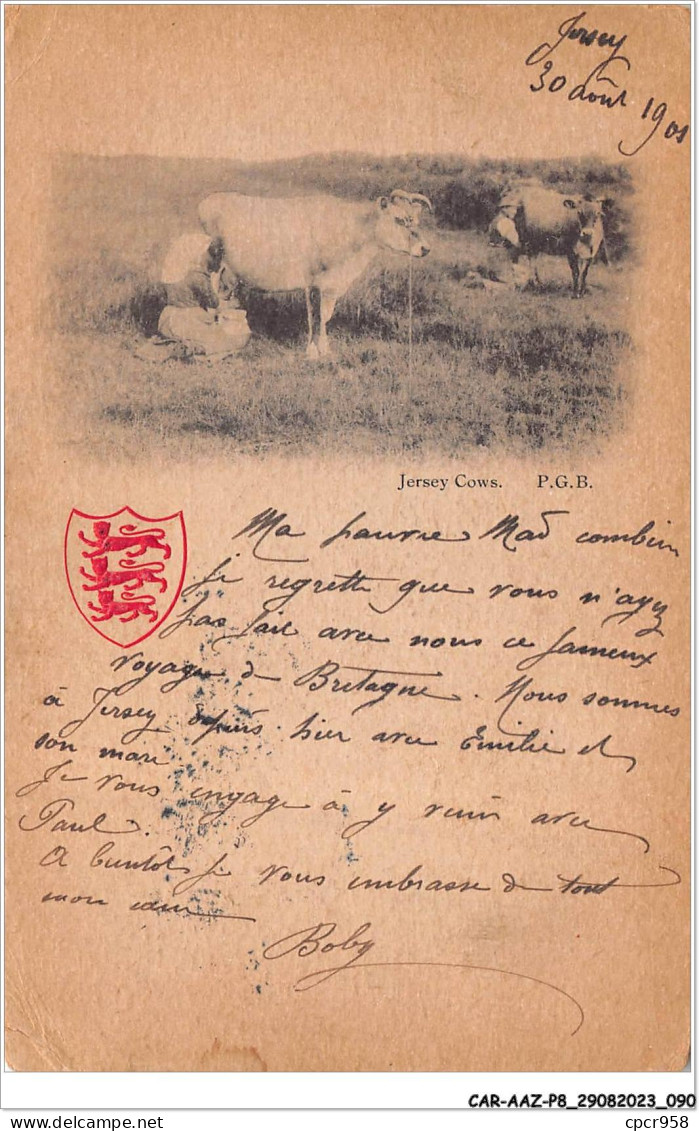 Jersey
30 août 1901
Jersey Cows. P.G.B.
Ma pauvre Mad combien
je regrette que vous n'ayez
pas fait avec nous ce fameux
voyage de Bretagne. Nous sommes
à Jersey depuis hier avec Emilie et
son mari
Je vous engage à y venir avec
Paul.
A bientôt je vous embrasse de tout
mon cœur
Boby
CAR-AAZ-P8_29082023_090
cpcr958